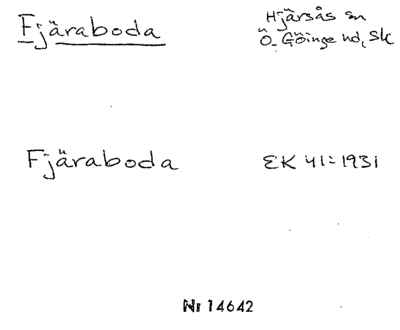 Fjäraboda
Hjärsås sn
Ö. Göinge hd, Sk
Fjäraboda
EK 41:1931
Nr 14642